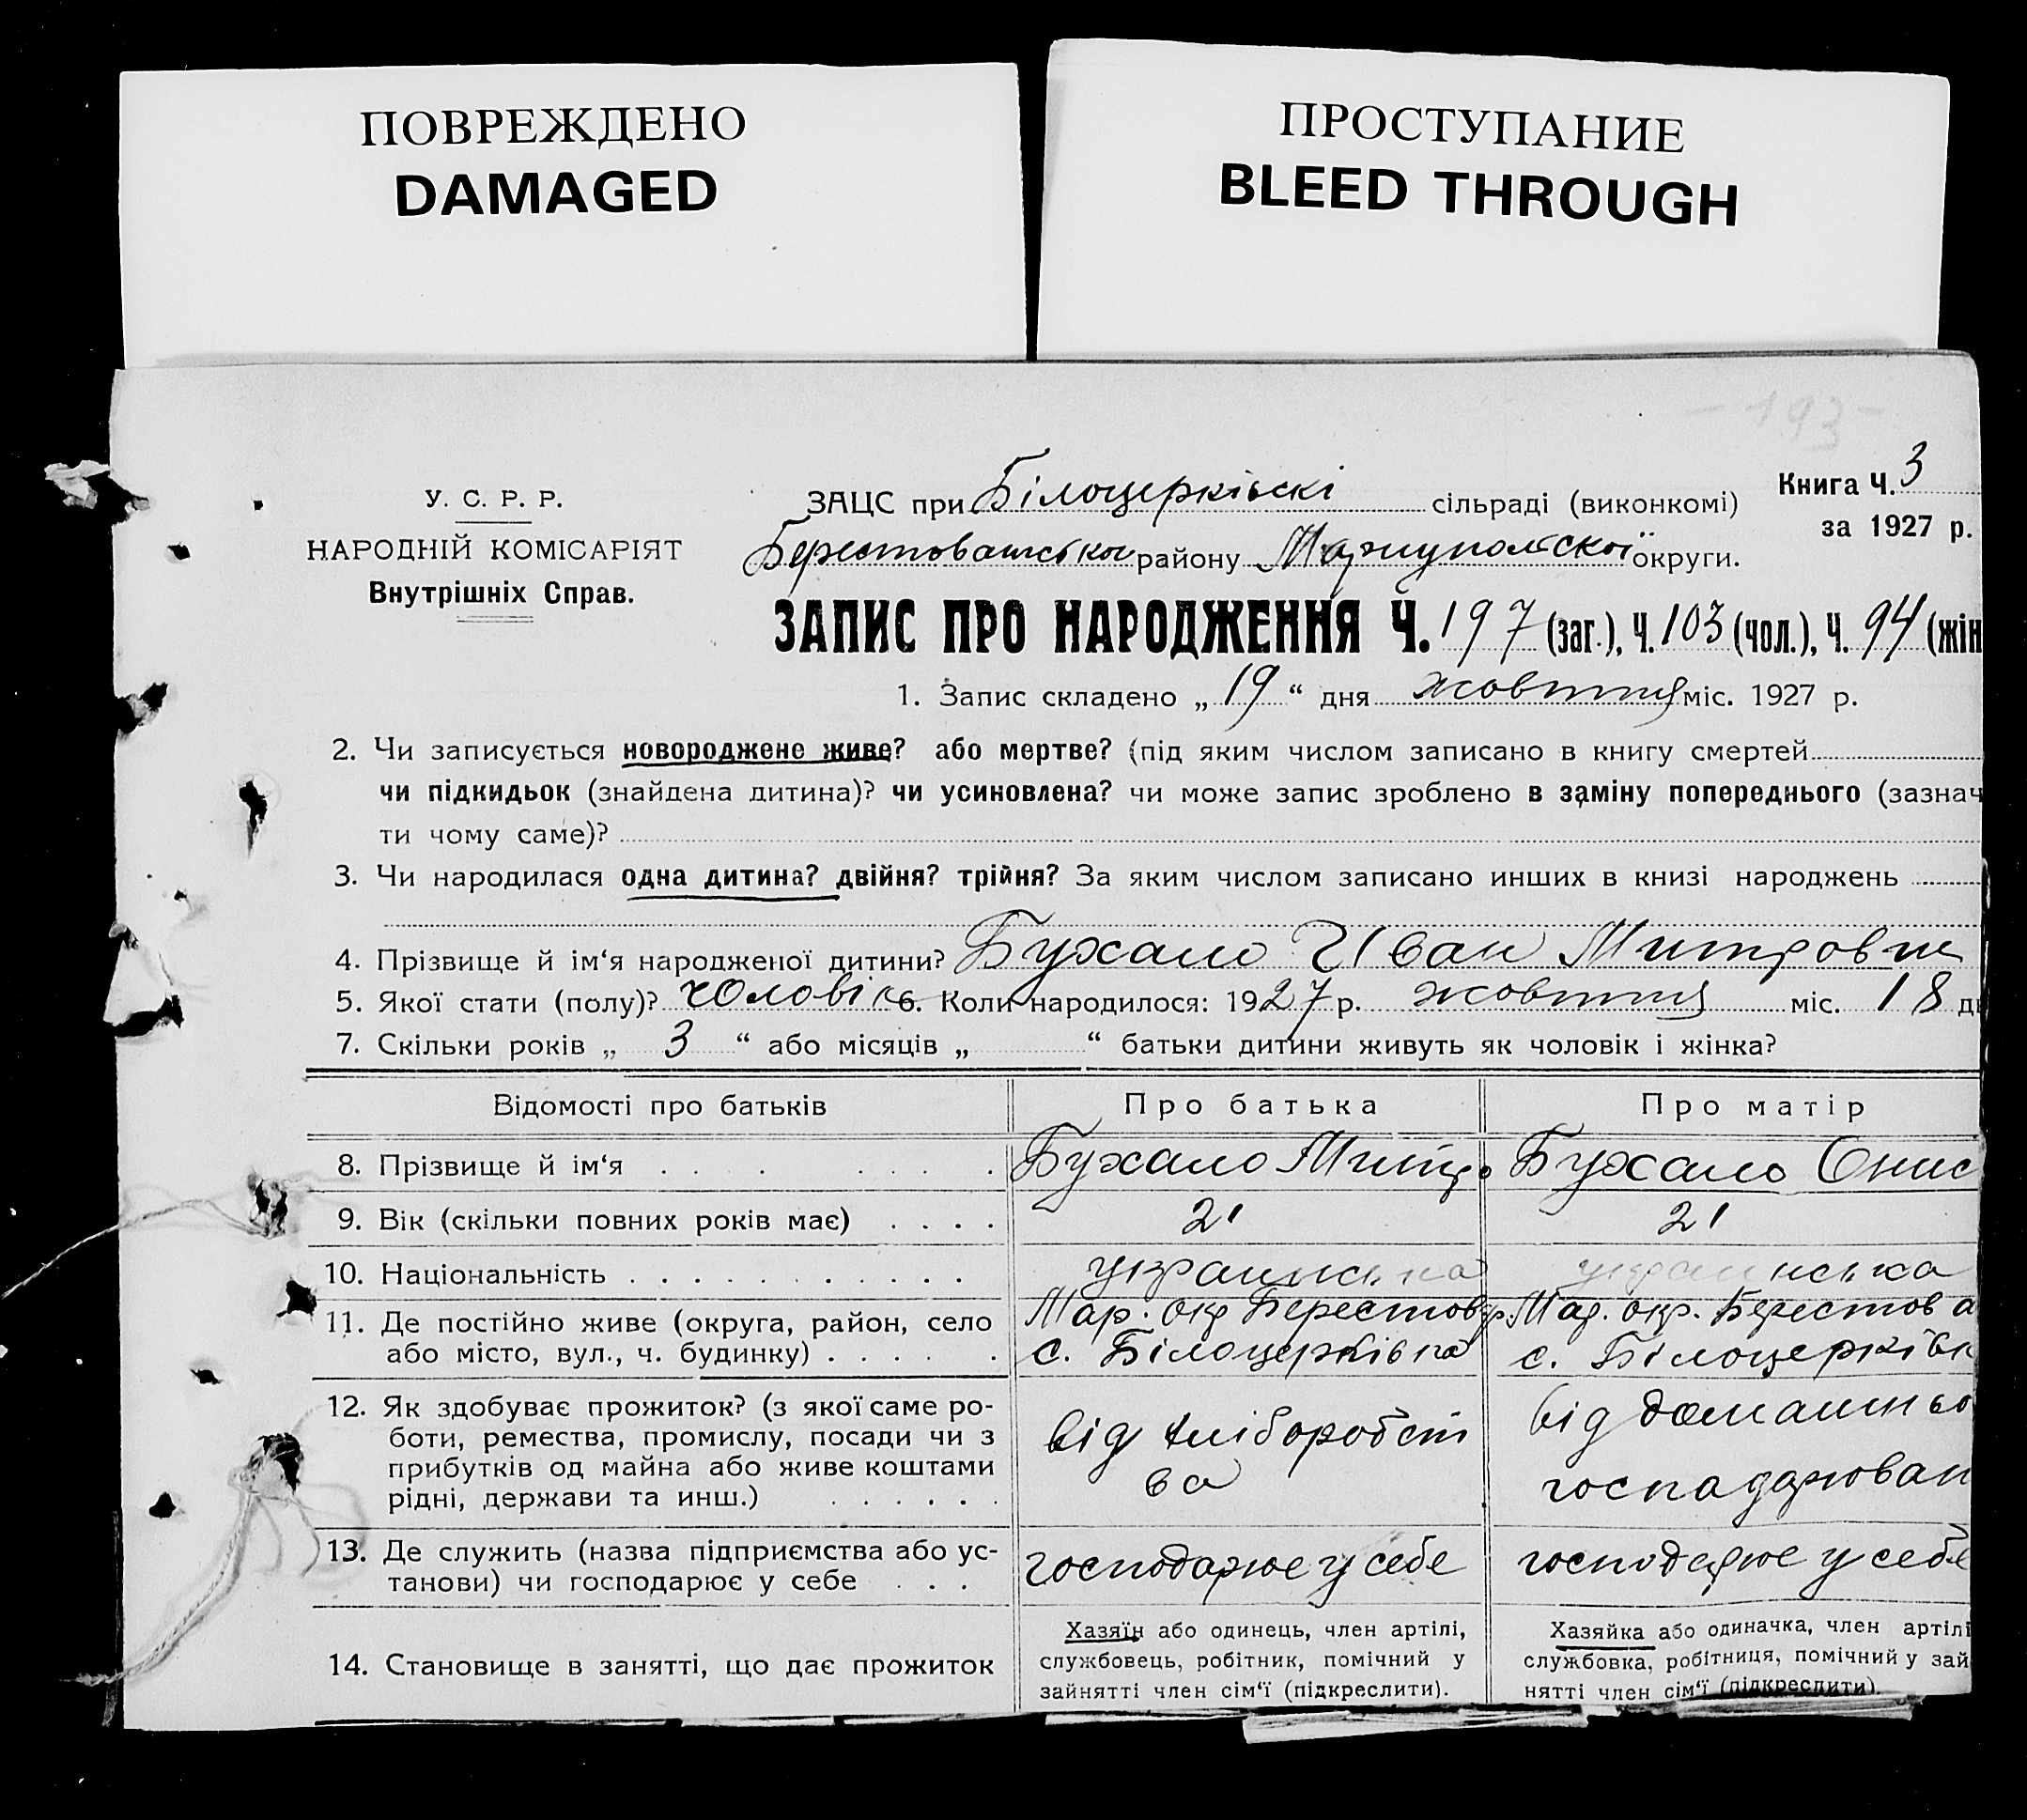 ПОВРЕЖДЕНО
DAMAGED
ПРОСТУПАНИЕ
BLEED THROUGH
- 193 -
У. С. Р. Р.
НАРОДНІЙ КОМІСАРІЯТ
Внутрішніх Справ.
Книга Ч. 3
за 1927 р.
ЗАЦС при Білоцерківскі сільраді (виконкомі)
району Маріупольскої округи.
ЗАПИС ПРО НАРОДЖЕННЯ Ч. 197 (заг.), Ч. 103 (чол.), Ч. 94 (жін
1. Запис складено „ 19 “ дня жовтня міс. 1927 р.
2. Чи записується новороджене живе? або мертве? (під яким числом записано в книгу смертей
чи підкидьок (знайдена дитина)? чи усиновлена? чи може запис зроблено в заміну попереднього (зазнач
ти чому саме)?
3. Чи народилася одна дитина? двійня? трійня? За яким числом записано инших в книзі народжень
4. Прізвище й ім‘я народженої дитини? Бухало Иван Митрович
5. Якої стати (полу)? чоловік 6. Коли народилося: 1927 р. жовтня міс. 18 дн
7. Скільки років „ 3 “ або місяців „ “ батьки дитини живуть як чоловік і жінка?
Відомості про батьків Про батька Про матір
8. Прізвище й ім‘я . . . . . . . . Бухало Митро Бухало Онис
9. Вік (скільки повних років має) . . . . 21 21
10. Національність . . . . . . . . . . . українська українська
11. Де постійно живе (округа, район, село Мар. окр Берестов р. Мар. окр. Берестова
або місто, вул., ч. будинку) . . . . . . с. Білоцерківка с. Білоцерківк
12. Як здобуває прожиток? (з якої саме ро-
боти, ремества, промислу, посади чи з
прибутків од майна або живе коштами
рідні, держави та инш.) . . . . . .
від хліборобст
ва
від домашньо
господарюван
13. Де служить (назва підприємства або ус-
танови) чи господарює у себе . . .
господарює у себе
господарює у себе
14. Становище в занятті, що дає прожиток
Хазяїн або одинець, член артілі,
службовець, робітник, помічний у
зайнятті член сім‘ї (підкреслити).
Хазяйка або одиначка, член артілі
службовка, робітниця, помічний у зай
нятті член сім‘ї (підкреслити).